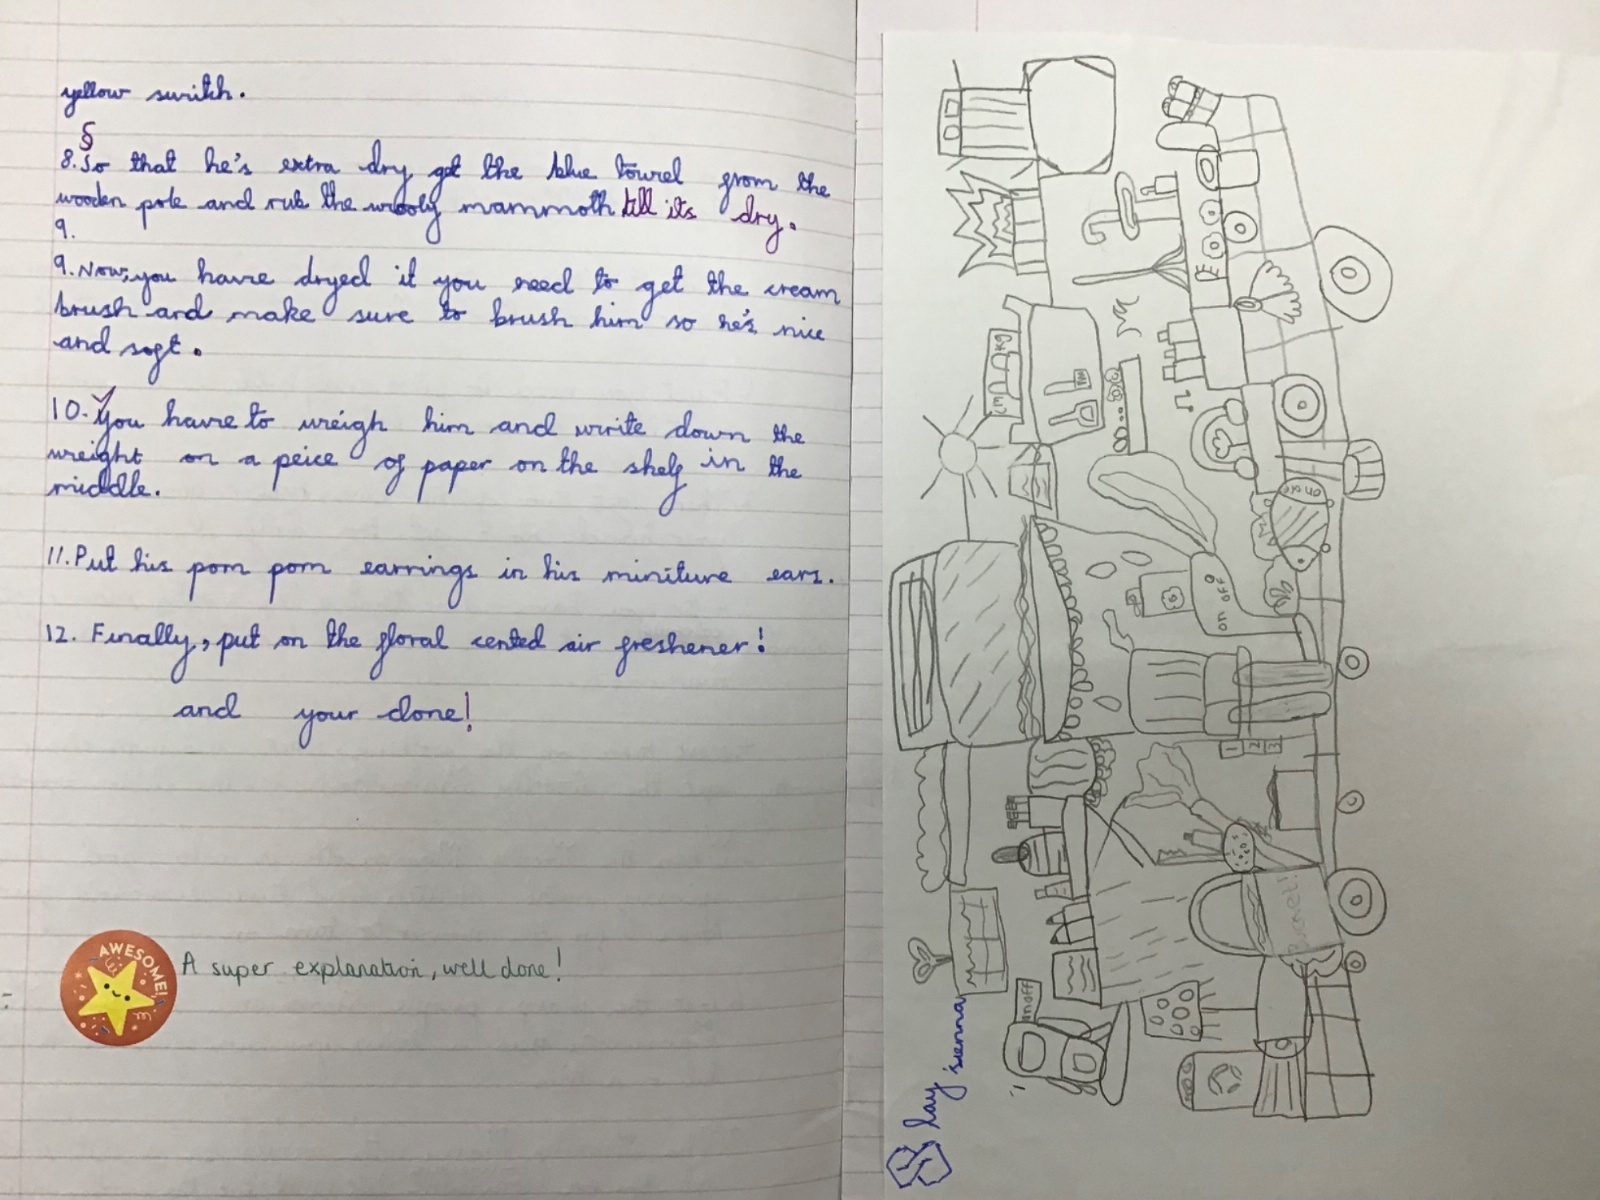 yellow switch.
S
8. So that he's extra dry get the blue towel from the
wooden pole and rub the wooly mammoth till its dry.
9.
9. Now, you have dryed it you need to get the cream
brush and make sure to brush him so he's nice
and soft.
10. You have to weigh him and write down the
weight on a peice of paper on the shelf in the
middle.
11. Put his pom pom earrings in his miniture ears.
12. Finally, put on the floral cented air freshener!
and your done!
AWESOME!
A super explanation, well done!
cm
kg
on off
on off
1 2 3
on off
Slay sienna